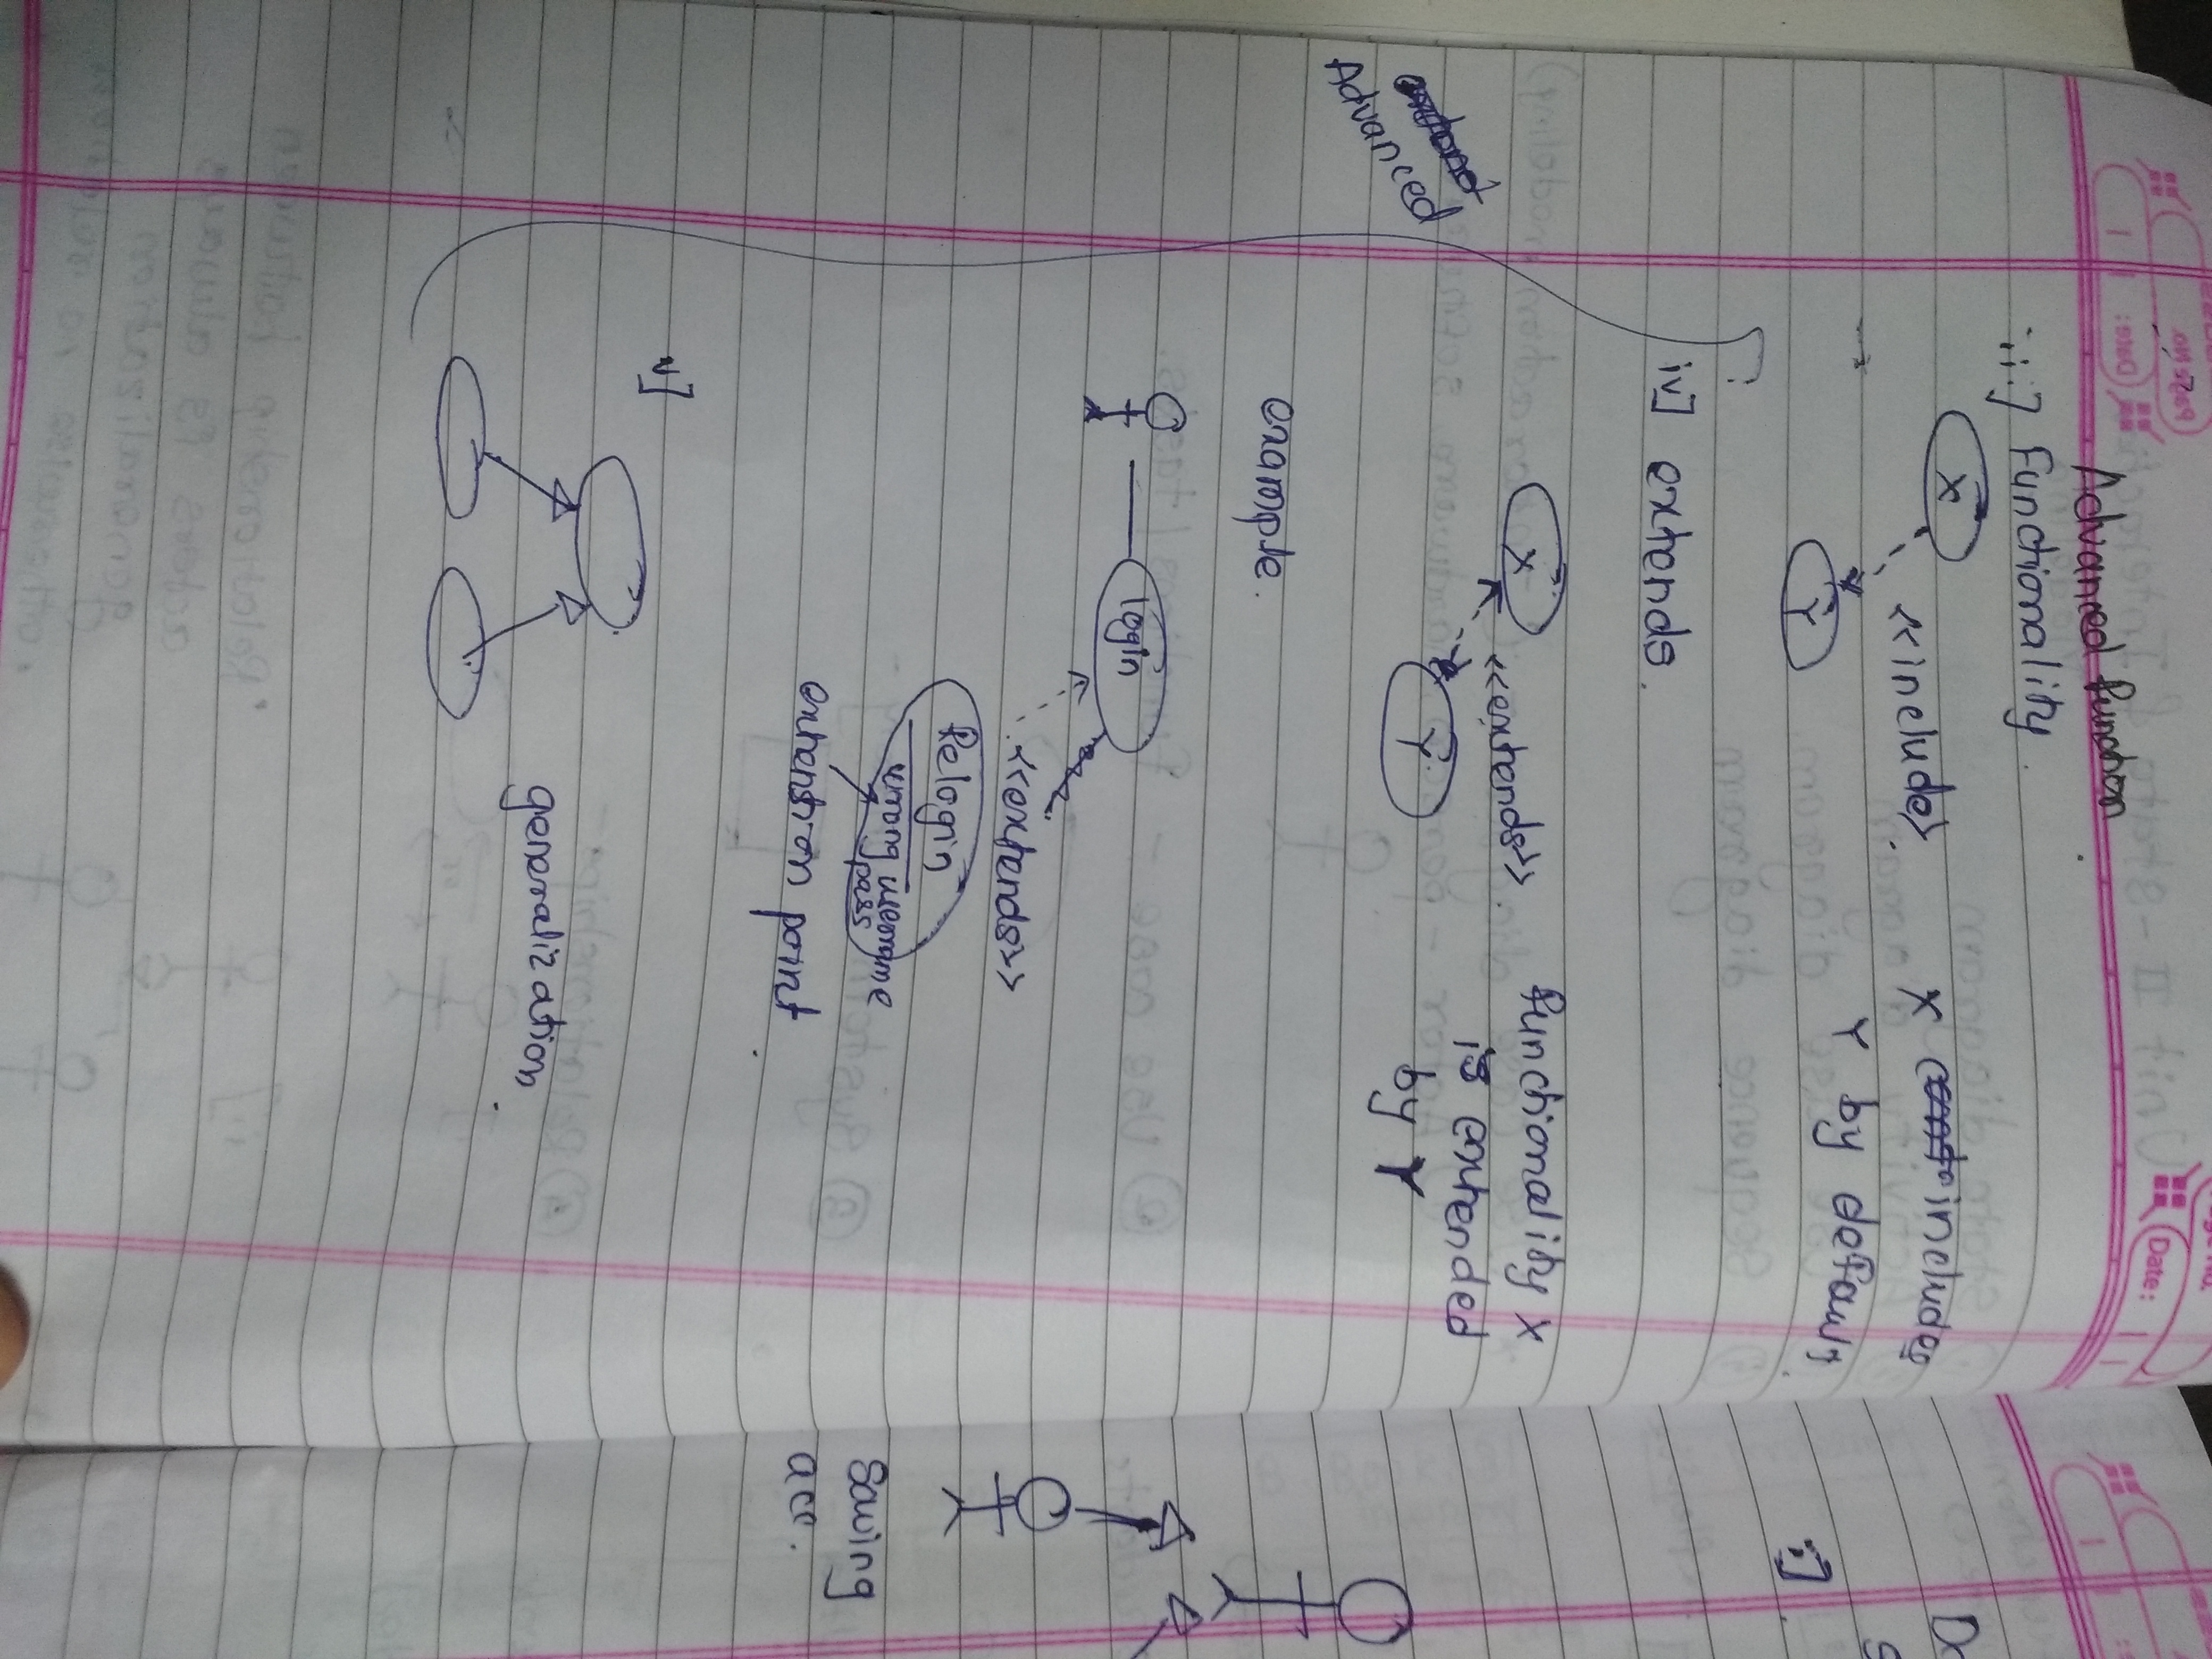 Page No.
Date:
Advanced function
iii] Functionality.
X
<<include>.
X includes
Y by default.
Y
iv] extends.
X
<<extends>>.
Functionality X
is extended
by Y
Y
Advanced
example.
login
<<extends>>
Relogin
wrong username
pass
extenstion point.
v]
generalization.
i].
Saving
acc.